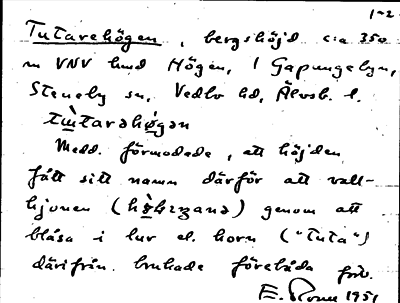 1-2
Tutarehögen, bergshöjd c:a 350
m VNV hmd Högen, l Gapungebyn,
Steneby sn, Vedbo hd, Älvsb. l.
tùtarəhǿgən
Medd. förmodade, att höjden
fått sitt namn därför att vall-
hjonen (                ) genom att
blåsa i lur el. horn ("tuta")
därifrån brukade förebåda
E.          1951